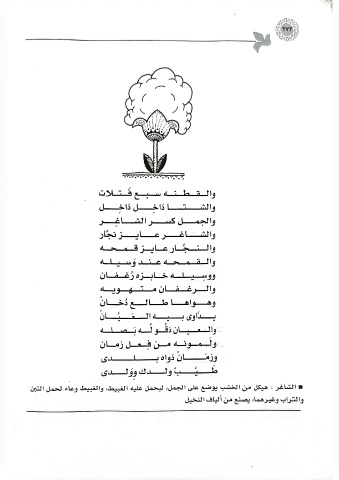 ٢٧٢
والقطنه سبع فَتلات
والشتا دَاخِل دَاخِل
والجمل كسر الشاغِر
والشاغر عايز نجَّار
والنجَّار عايز قمحه
والقمحه عند وَسيله
ووسيله خابزه رُغفان
والرغفان متهويه
وهواها طالع دُخانْ
يدَاوى بيه العَيَّانْ
والعيان دَقُّو لُه بَصله
وليمونه من فِعل زمان
وزمانْ دَواه بلدى
طَيِّبْ ولدك وِوَلدى
■ الشاغر : هيكل من الخشب يوضع على الجمل، ليحمل عليه الغبيط، والغبيط وعاء لحمل التبن
والتراب وغيرهما، يصنع من ألياف النخيل